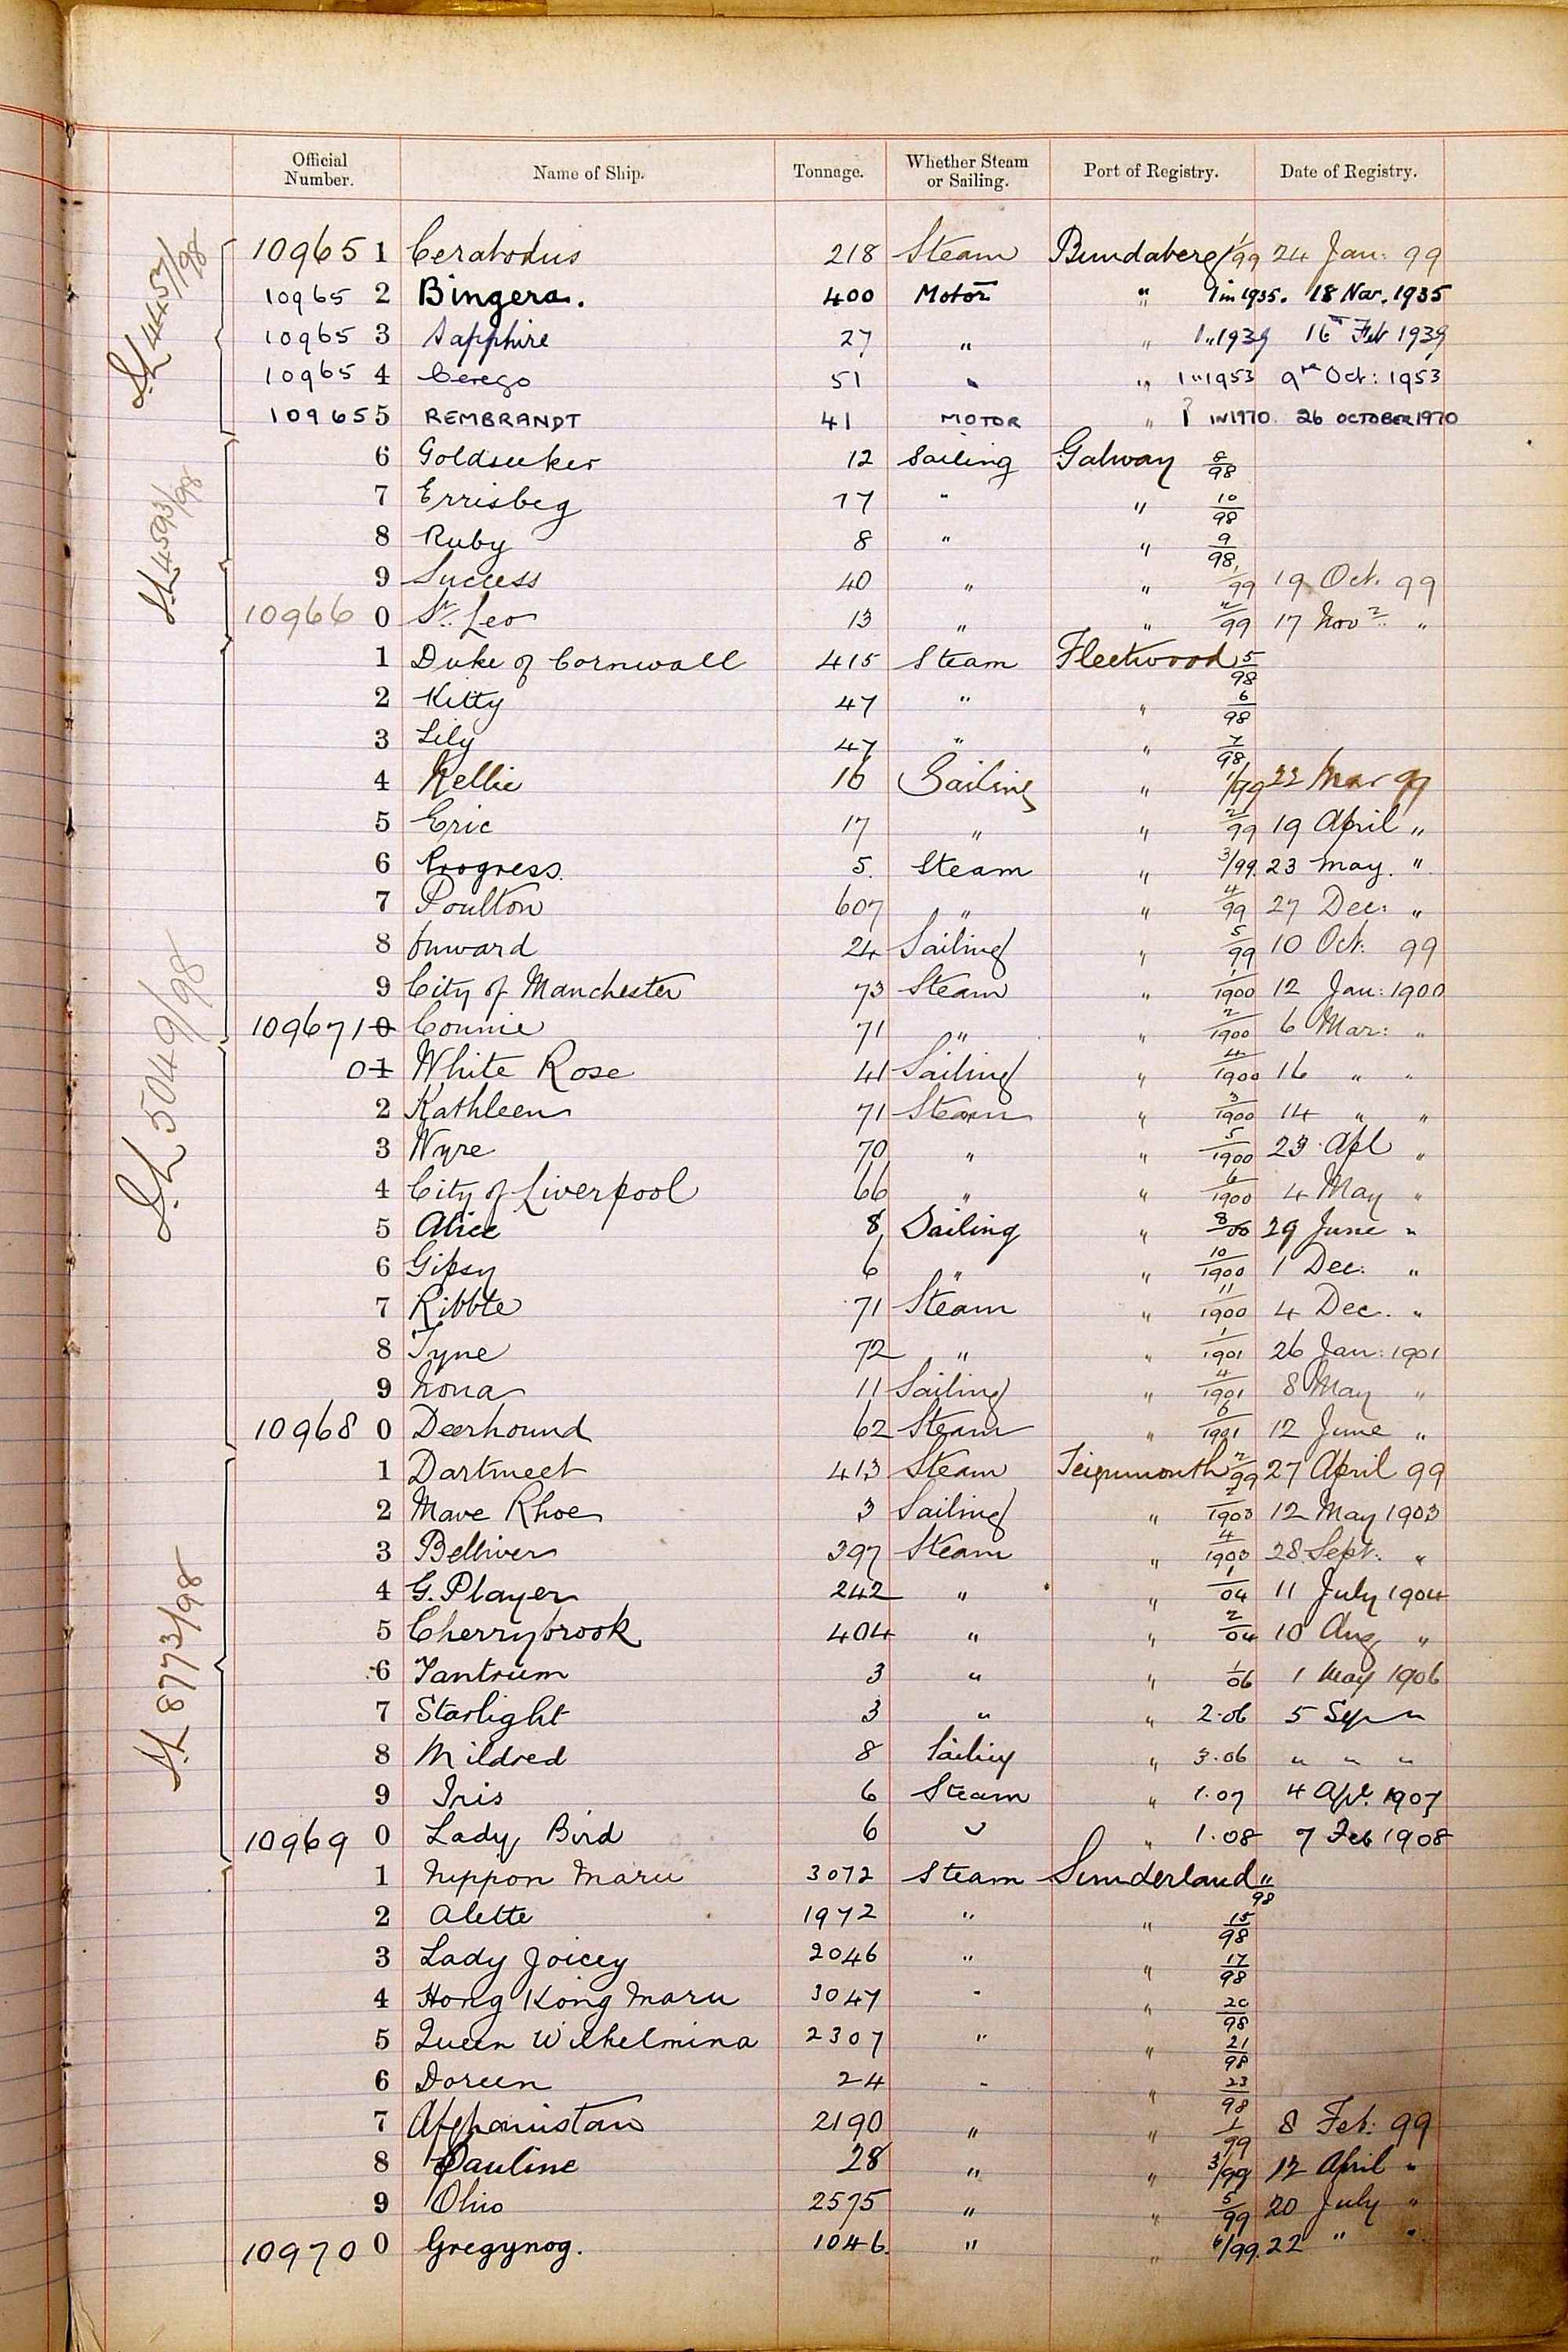 Official Number. Name of Ship. Tonnage. Whether Steam or Sailing. Port of Registry. Date of Registry.
SL 4457/98
10965 1 Ceratodus 218 Steam Bundaberg 1/99 24 Jan: 99
10965 2 Bingera. 400 Motor " 1 in 1935. 18 Mar. 1935
10965 3 Sapphire 27 " " 1 " 1939 16th Feb 1939
10965 4 Cerego 51 " " 1 " 1953 9th Oct: 1953
10965 5 REMBRANDT 41 MOTOR " 1 IN 1970. 26 OCTOBER 1970
SL 4593/98
6 Goldseeker 12 Sailing Galway 8/98
7 Errisbeg 17 " " 10/98
8 Ruby 8 " " 9/98
9 Success 40 " " 1/99 19 Oct. 99
10966 0 St. Leo 13 " " 2/99 17 Nov "
SL 5049/98
1 Duke of Cornwall 415 Steam Fleetwood 5/98
2 Kitty 47 " " 6/98
3 Lily 47 " " 7/98
4 Nellie 16 Sailing " 1/99 22 Mar 99
5 Eric 17 " " 2/99 19 April "
6 Progress. 5. Steam " 3/99. 23 May. "
7 Poulton 607 " " 4/99 27 Dec: "
8 Onward 24 Sailing " 5/99 10 Oct: 99
9 City of Manchester 73 Steam " 1/1900 12 Jan: 1900
10967 1 0 Connie 71 " " 2/1900 6 Mar: "
0 1 White Rose 41 Sailing " 4/1900 16 " "
2 Kathleen 71 Steam " 3/1900 14 " "
3 Wyre 70 " " 5/1900 23 Apl "
4 City of Liverpool 66 " " 6/1900 4 May "
5 Alice 8 Sailing " 8/00 29 June "
6 Gipsy 6 " " 10/1900 1 Dec: "
7 Ribble 71 Steam " 11/1900 4 Dec. "
8 Tyne 72 " " 1/1901 26 Jan: 1901
9 Nona 11 Sailing " 4/1901 8 May "
10968 0 Deerhound 62 Steam " 6/1901 12 June "
SL 8773/98
1 Dartmeet 413 Steam Teignmouth 2/99 27 April 99
2 Mave Rhoe 3 Sailing " 2/1903 12 May 1903
3 Belliver 397 Steam " 4/1903 28 Sept. "
4 G. Player 242 " " 1/04 11 July 1904
5 Cherrybrook 404 " " 2/04 10 Aug "
6 Tantrum 3 " " 1/06 1 May 1906
7 Starlight 3 " " 2.06 5 Sep "
8 Mildred 8 Sailing " 3.06 " " "
9 Iris 6 Steam " 1.07 4 Apr. 1907
10969 0 Lady Bird 6 " " 1.08 7 Feb 1908
1 Nippon Maru 3072 Steam Sunderland 11/98
2 Alette 1972 " " 15/98
3 Lady Joicey 2046 " " 17/98
4 Hong Kong Maru 3047 " " 20/98
5 Queen Wilhelmina 2307 " " 21/98
6 Doreen 24 " " 23/98
7 Afghanistan 2190 " " 1/99 8 Feb: 99
8 Pauline 28 " " 3/99 12 April "
9 Ohio 2575 " " 5/99 20 July "
10970 0 Gregynog. 1046. " " 6/99. 22 " "